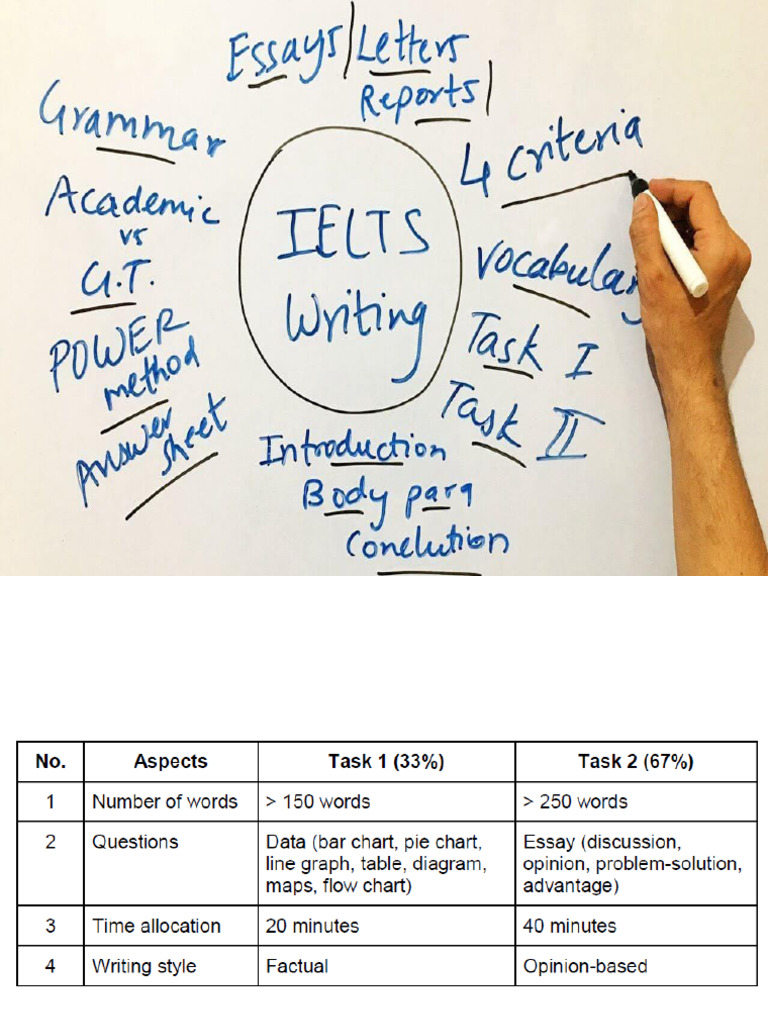 Essays/Letters
Reports/
Grammar
4 criteria
Academic
vs
G.T.
IELTS
Writing
Vocabulary
POWER
method
Task I
Answer
sheet
Task II
Introduction
Body para
Conclution
No. Aspects Task 1 (33%) Task 2 (67%)
1 Number of words > 150 words > 250 words
2 Questions Data (bar chart, pie chart, Essay (discussion,
line graph, table, diagram, opinion, problem-solution,
maps, flow chart) advantage)
3 Time allocation 20 minutes 40 minutes
4 Writing style Factual Opinion-based